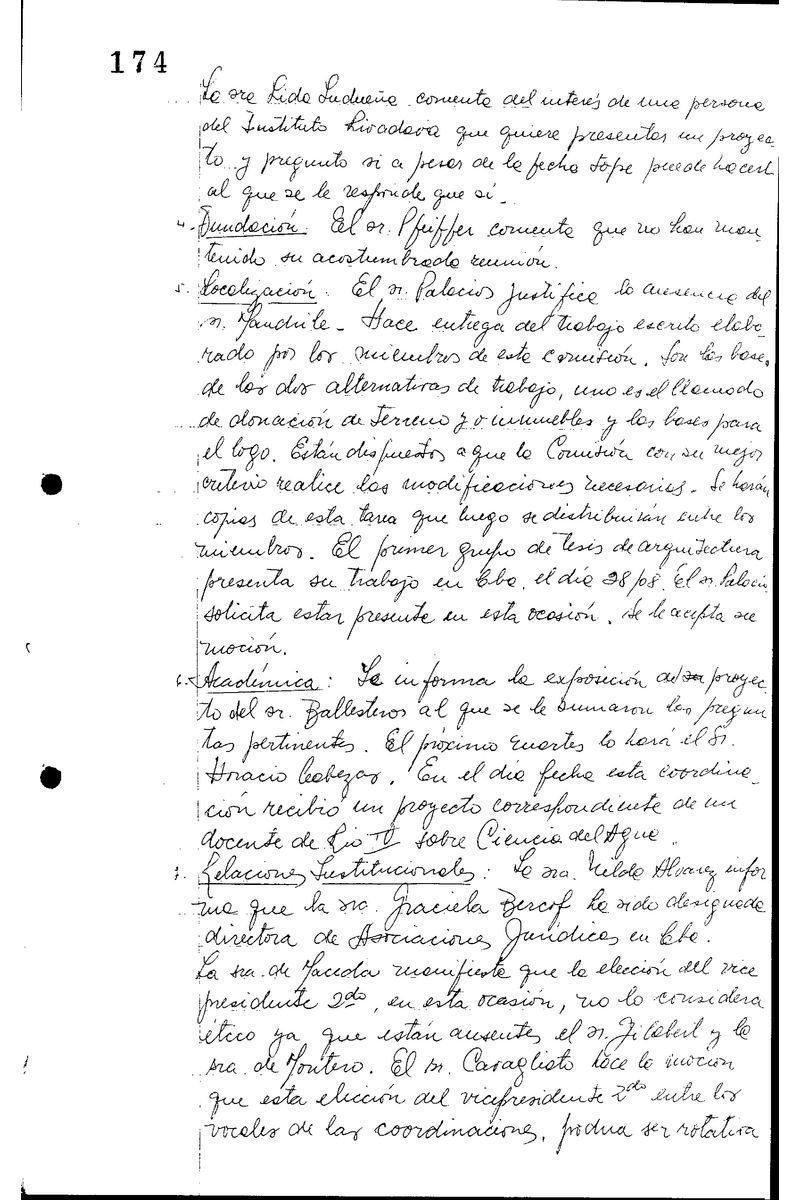 174
La sra Lida Ludueña comenta del interés de una persona
del Instituto Rivadavia que quiere presentar un proyec_
to y pregunta si a pesar de la fecha tope puede hacerl
al que se le responde que sí_
4. Fundación. El sr. Pfeiffer comenta que no han man_
tenido su acostumbrada reunión.
5. Localización. El sr. Palacios justifica la ausencia del
sr. Mandrile_ Hace entrega del trabajo escrito elabo_
rado por los miembros de esta comisión. Son las bases
de las dos alternativas de trabajo, uno es el llamado
de donación de terreno y/o inmuebles y las bases para
el logo. Están dispuestos a que la Comisión con su mejor
criterio realice las modificaciones necesarias_ Se harán
copias de esta tarea que luego se distribuirán entre los
miembros. El primer grupo de tesis de arquitectura
presenta su trabajo en Cba. el día 28/08. El sr. Palacio
solicita estar presente en esta ocasión. Se le acepta su
moción.
6._ Académica: Se informa la exposición del proyec_
to del sr. Ballesteros al que se le sumaron las pregun
tas pertinentes. El próximo martes lo hará el Sr.
Horacio Cabezas. En el día fecha esta coordina_
ción recibió un proyecto correspondiente de un
docente de Río IV sobre Ciencia del Agua.
7. Relaciones Institucionales: La sra. Nilda Alvarez infor
ma que la sra. Graciela Bercof ha sido designada
directora de Asociaciones Jurídicas en Cba.
La sra. de Maceda manifiesta que la elección del vice
presidente 2do, en esta ocasión, no lo considera
ético ya que están ausentes el sr. Jilabert y la
sra. de Montero. El sr. Cavagliato hace la moción
que esta elección del vicepresidente 2do entre los
vocales de las coordinaciones, podría ser rotativa